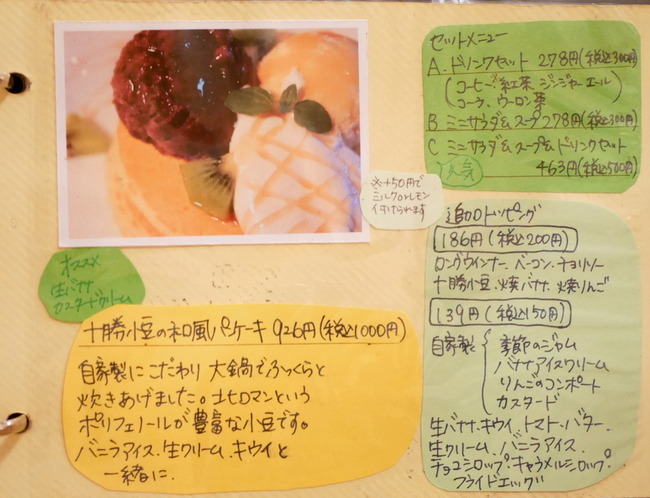 セットメニュー
A. ドリンクセット 278円(税込300円)
(コーヒー、紅茶 ジンジャーエール
コーラ、ウーロン茶)
B ミニサラダ&スープ 278円(税込300円)
C ミニサラダ&スープ&ドリンクセット
人気 463円(税込500円)
※+50円で
ミルクorレモン
付けられます
追加トッピング
186円(税込200円)
ロングウインナー、ベーコン、チョリソー
十勝小豆、焼バナナ、焼りんご
139円(税込150円)
自家製 { 季節のジャム
バナナアイスクリーム
りんごのコンポート
カスタード
生バナナ、キウイ、トマト、バター、
生クリーム、バニラアイス、
チョコシロップ、キャラメルシロップ、
フライドエッグ
オススメ
生バナナ
カスタードクリーム
十勝小豆の和風パンケーキ 926円(税込1000円)
自家製にこだわり 大鍋でふっくらと
炊きあげました。キタロマンという
ポリフェノールが豊富な小豆です。
バニラアイス、生クリーム、キウイと
一緒に.